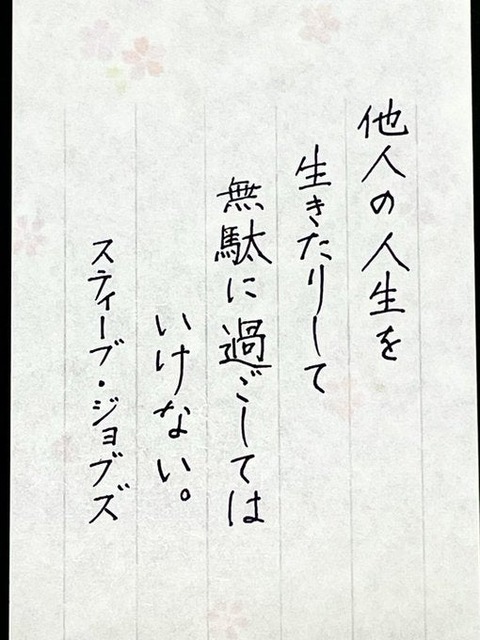 他人の人生を
生きたりして
無駄に過ごしては
いけない。
スティーブ・ジョブズ